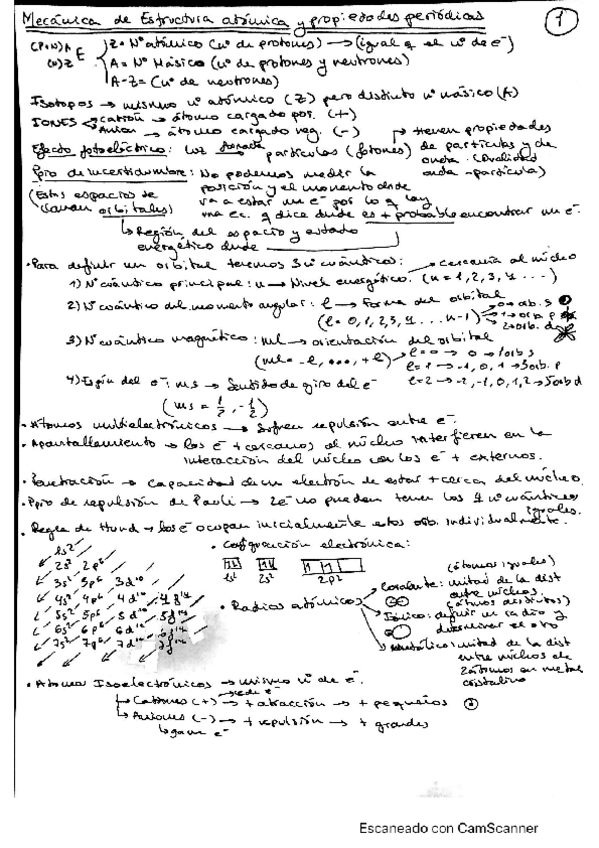 Mecánica de Estructura atómica y propiedades periódicas 1
(P+N) A E Z = Nº atómico (nº de protones) → (igual q el nº de e⁻)
(N) Z A = Nº Másico (nº de protones y neutrones)
A-Z = (nº de neutrones)
Isotopos → mismo nº atómico (Z) pero distinto nº másico (A)
IONES → Catión → átomo cargado pos. (+)
Anión → átomo cargado neg. (-)
→ tienen propiedades
Efecto fotoeléctrico: luz partículas (fotones) de partículas y de
onda. (Dualidad
onda-partícula)
Ppio de incertidumbre: No podemos medir la
posición y el momento donde
(Estos espacios se va a estar un e⁻ por lo q hay
llaman orbitales) una ec. q dice donde es + probable encontrar un e⁻.
↳ Región del espacio y estado
energético donde
• Para definir un orbital tenemos 3 nº cuánticos: → cercanía al núcleo
1) Nº cuántico principal: n → Nivel energético. (n = 1, 2, 3, 4 ...)
2) Nº cuántico del momento angular: l → forma del orbital
(l = 0, 1, 2, 3, 4 ... n-1) 0 → orb. s
1 → orb. p
2 → orb. d
3) Nº cuántico magnético: ml → orientación del orbital
(ml = -l, ..., +l) l=0 → 0 → 1 orb s
l=1 → -1, 0, 1 → 3 orb. p
l=2 → -2, -1, 0, 1, 2 → 5 orb d
4) Espín del e⁻: ms → Sentido de giro del e⁻
(ms = 1/2, -1/2)
• Átomos multielectrónicos → Sufren repulsión entre e⁻.
• Apantallamiento → los e⁻ + cercanos al núcleo interfieren en la
interacción del núcleo con los e⁻ + externos.
• Penetración → capacidad de un electrón de estar + cerca del núcleo.
• Ppio de repulsión de Pauli → 2e⁻ no pueden tener los 4 nº cuánticos
iguales.
• Regla de Hund → los e⁻ ocupan inicialmente estos orb. individualmente.
• Configuración electrónica:
1s² 2s² 2p²
1s²
2s² 2p⁶
3s² 3p⁶ 3d¹⁰
4s² 4p⁶ 4d¹⁰ 4f¹⁴
5s² 5p⁶ 5d¹⁰ 5f¹⁴
6s² 6p⁶ 6d¹⁰ 6f¹⁴
7s² 7p⁶ 7d¹⁰ 7f¹⁴
• Radios atómicos
(átomos iguales)
Covalente: mitad de la dist
entre núcleos.
(átomos distintos)
Iónico: definir un radio y
determinar el otro
Metálico: mitad de la dist
entre núcleos de
2 átomos en metal
cristalino
• Átomos Isoelectrónicos → mismo nº de e⁻.
cede e⁻
↳ Cationes (+) → + atracción → + pequeños
↳ Aniones (-) → + repulsión → + grandes
↳ gana e⁻
Escaneado con CamScanner